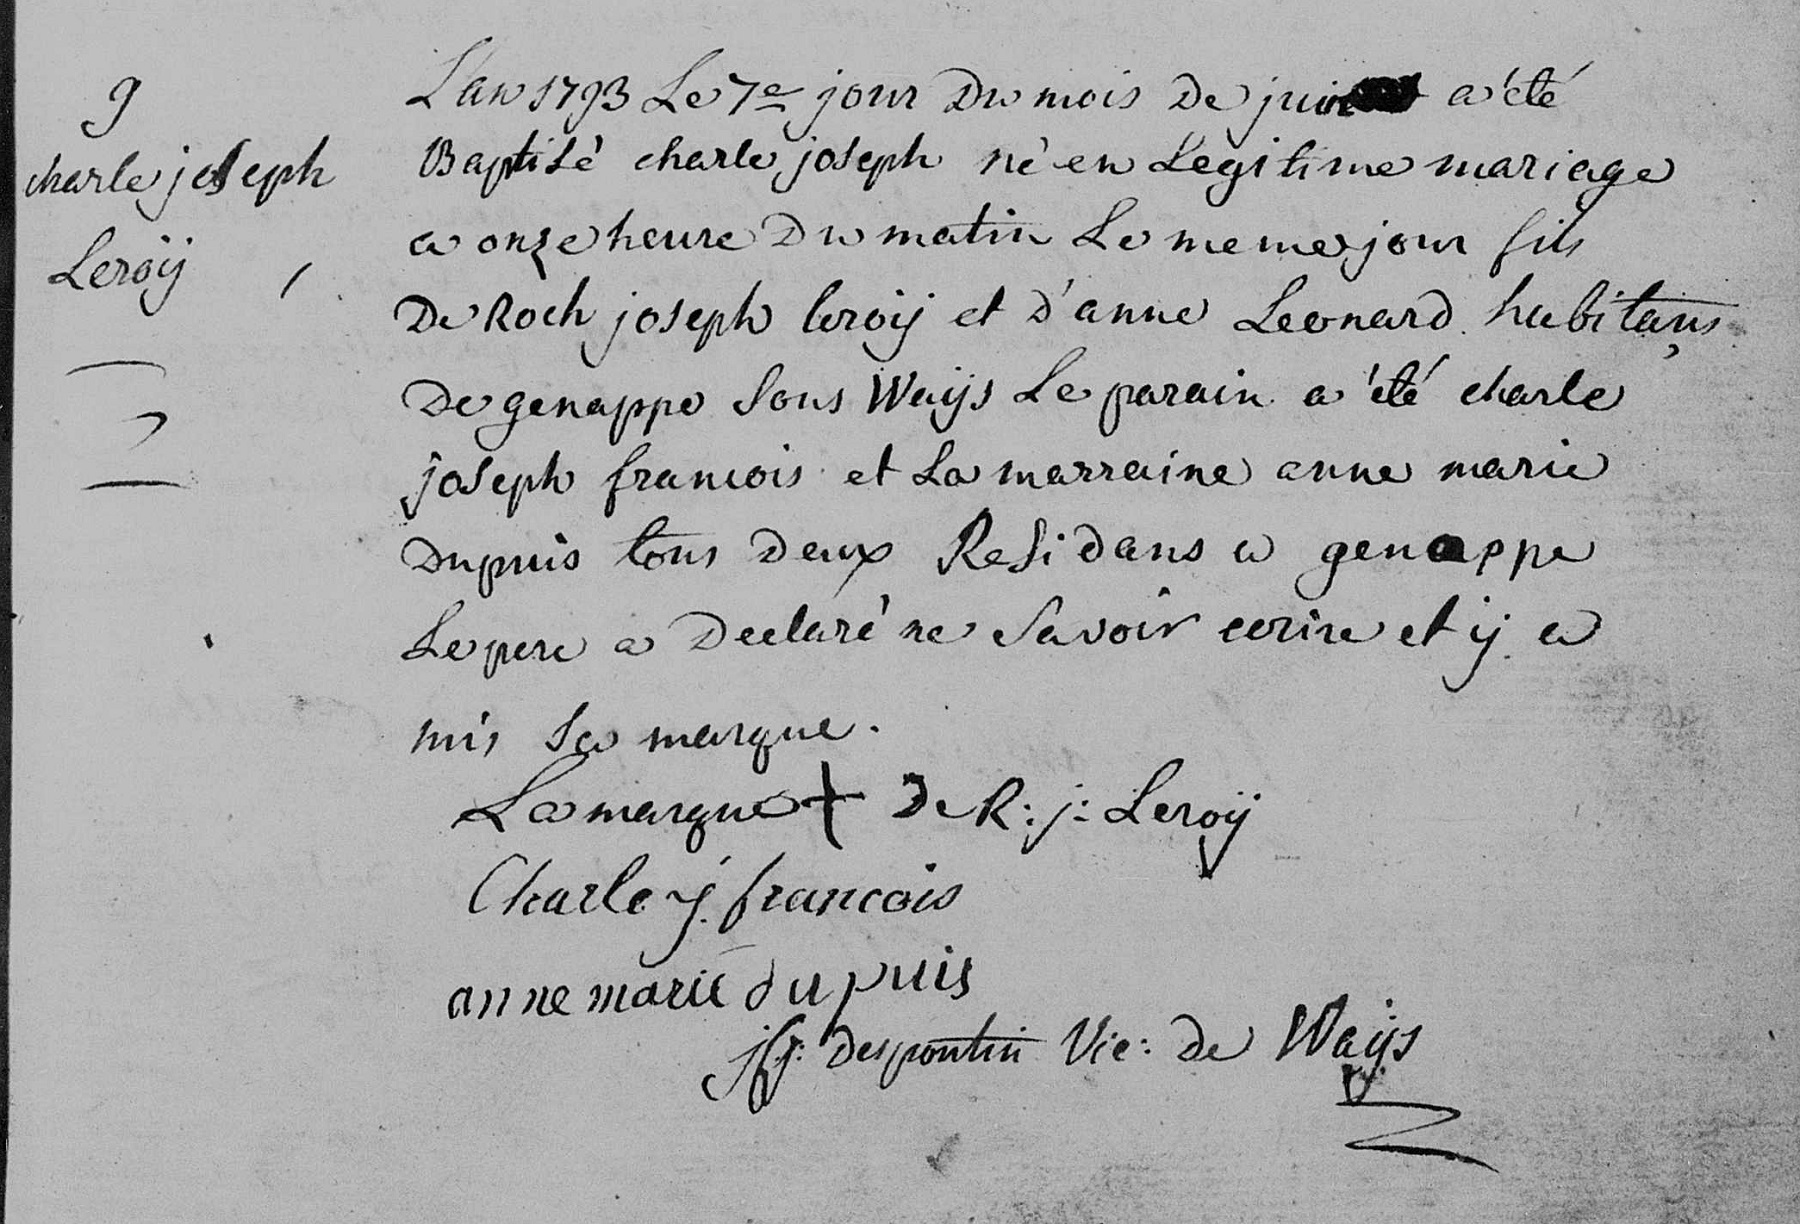 9
charle joseph
Leroÿ
L'an 1793 Le 7e jour Du mois De juin a été
Baptisé charle joseph né en Legitime mariage
a onze heure Du matin Le meme jour fils
De Roch joseph leroÿ et d'anne Leonard habitans
De genappe sous Waÿs Le parain a été charle
joseph francois et La marraine anne marie
Dupuis tous Deux Residans a genappe
Le pere a Declaré ne savoir ecrire et ÿ a
mis sa marque.
La marque + De R: j: Leroÿ
Charle j. francois
anne marie dupuis
despontin Vic: de Waÿs